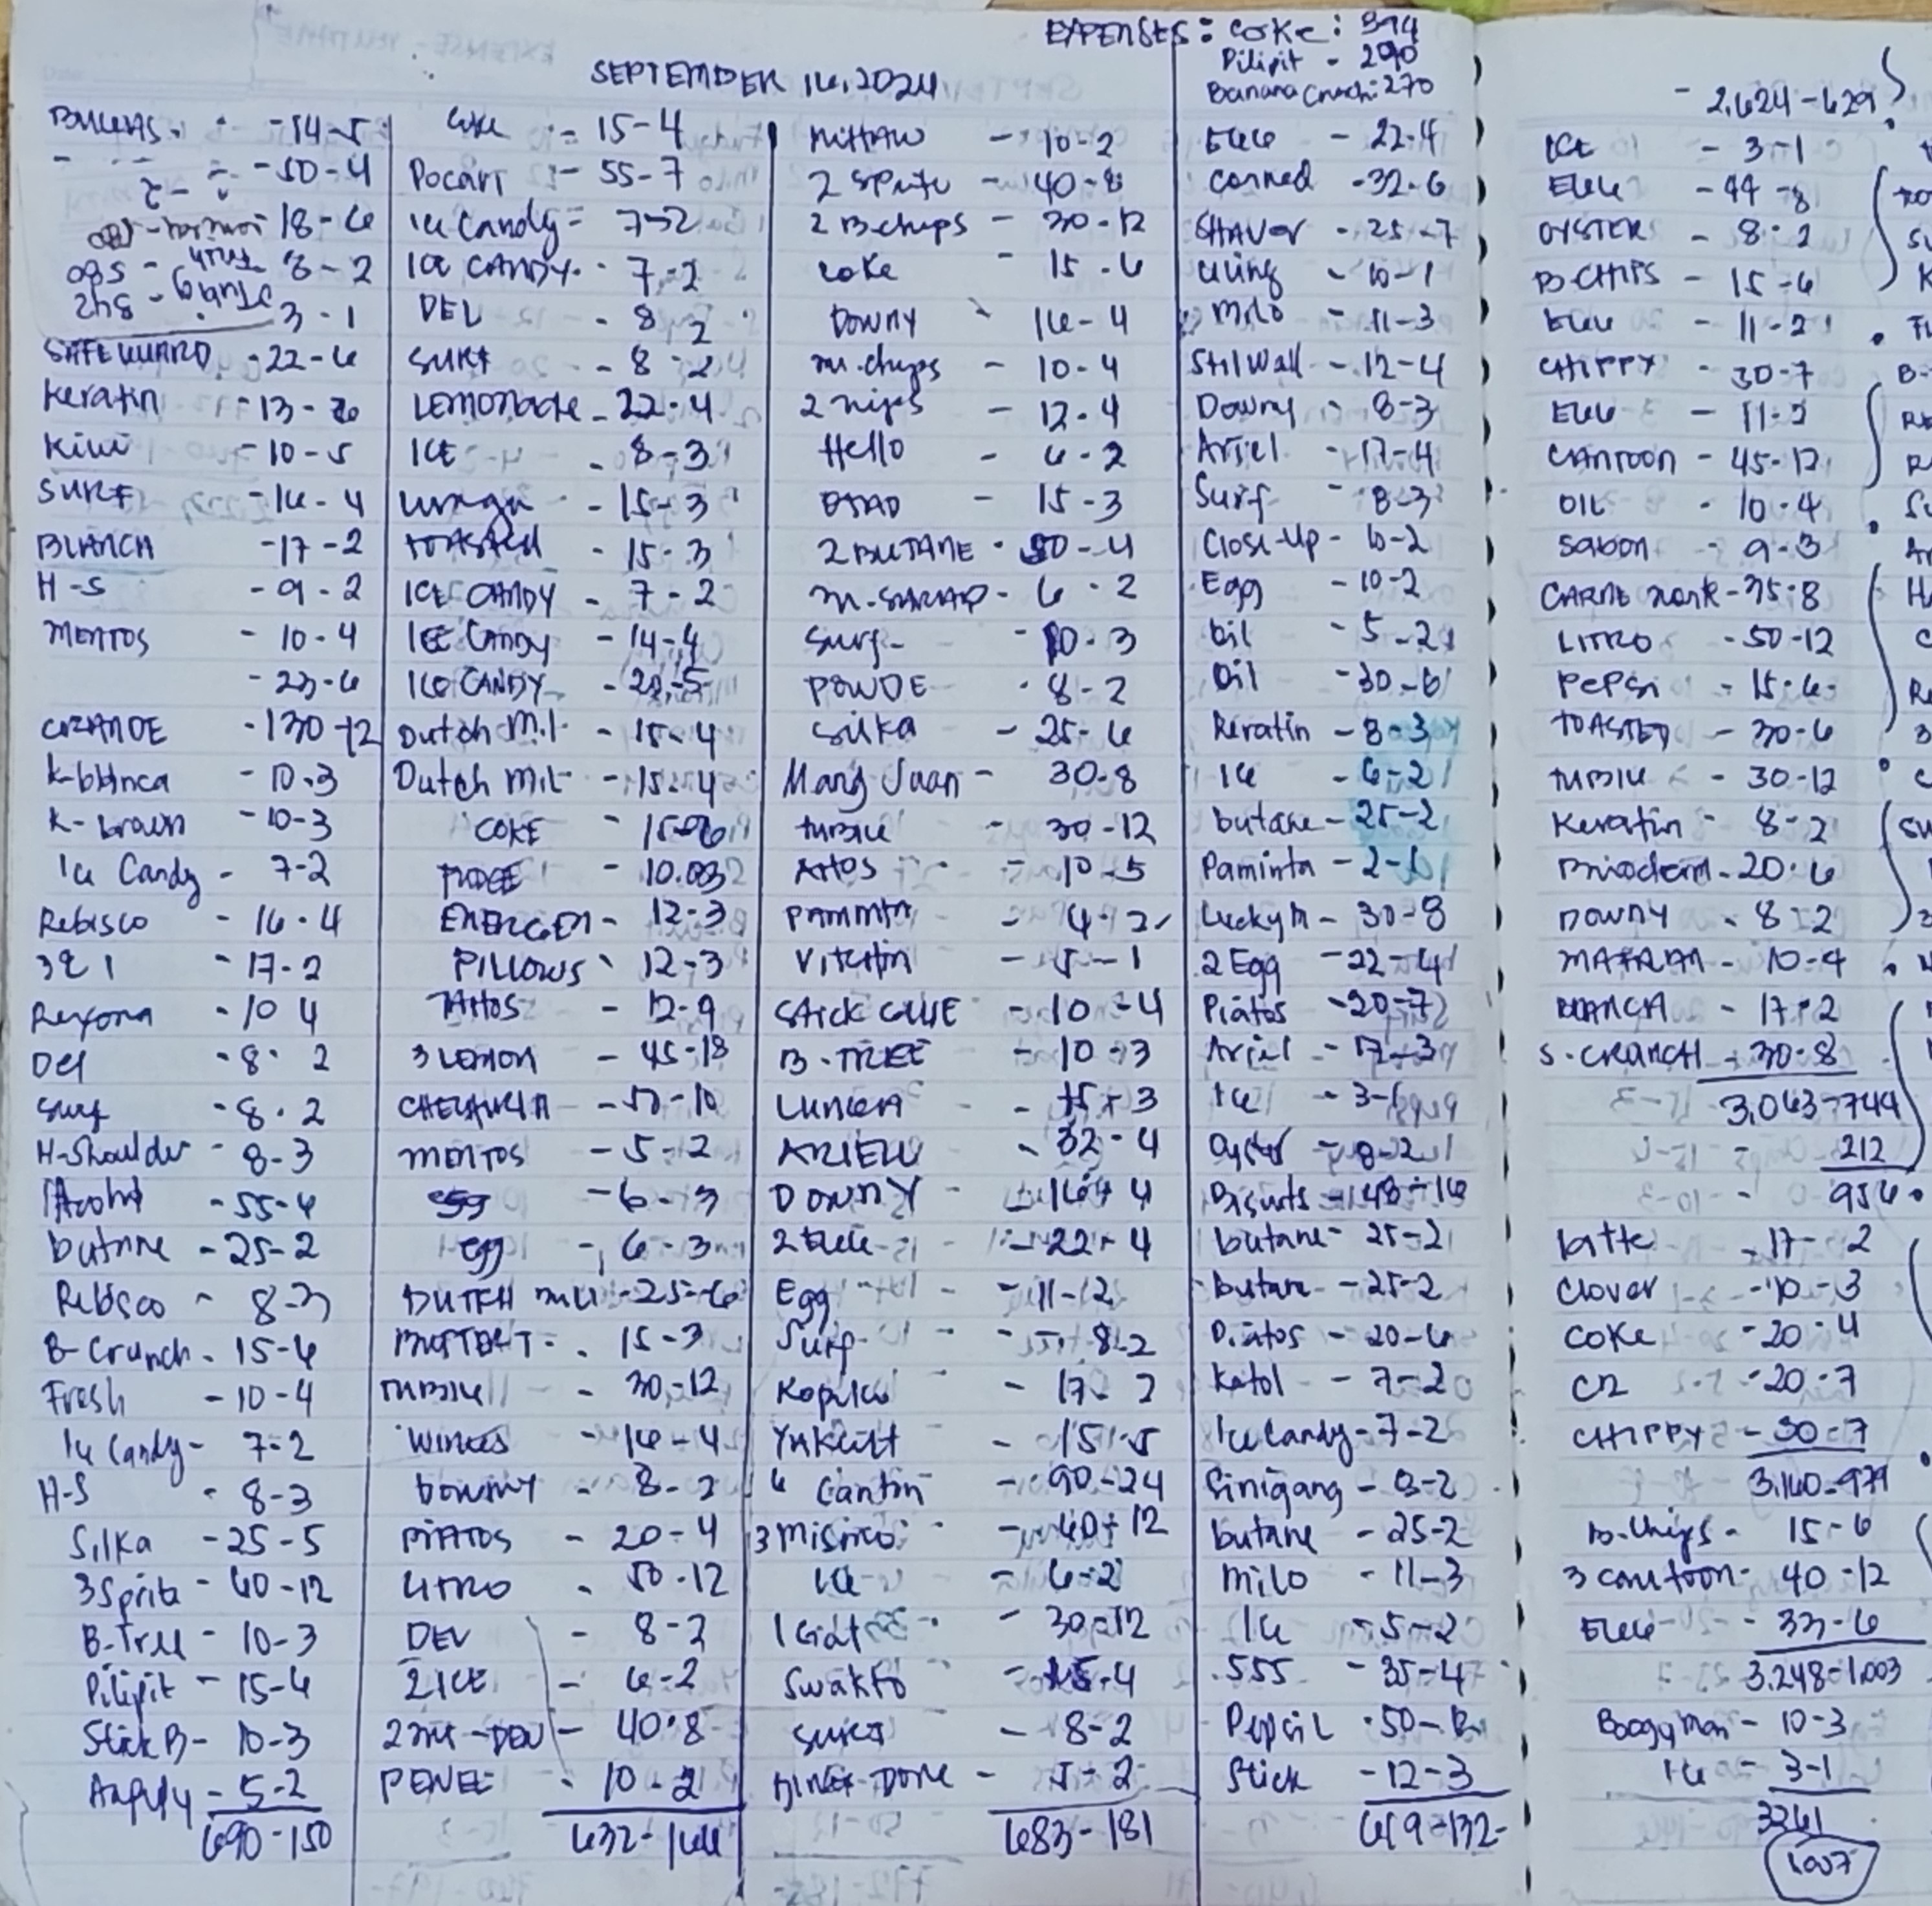 EXPENSES: Coke: 394
Pilipit - 290
Banana Crunch: 270
SEPTEMBER 16, 2024
- 14-5
- 50-4
18-6
8-2
3-1
SAFEGUARD - 22-6
Keratin - 13-
Kiwi - 10-5
SURF - 16-4
BIANCA - 17-2
H-S - 9-2
MENTOS - 10-4
- 23-6
GRANDE - 130-12
K-blanca - 10-3
K-brown - 10-3
Ice Candy - 7-2
Rebisco - 16-4
3&1 - 17-2
Rexona - 10 4
Del - 8-2
Surf - 8-2
H-Shoulder - 8-3
Alcohol - 55-6
butane - 25-2
Rebisco - 8-3
B-Crunch - 15-6
Fresh - 10-4
Ice Candy - 7-2
H-S - 8-3
Silka - 25-5
3 Sprite - 60-12
B-Tree - 10-3
Pilipit - 15-6
Stick B - 10-3
- 5-2
690-150
Coke - 15-4
Pocari - 55-7
Ice Candy - 7-2
ICE CANDY - 7-2
DEL - 8-2
SURF - 8-2
LEMONADE - 22-4
ICE - 8-3
- 15-3
TOASTED - 15-3
ICE CANDY - 7-2
ICE CANDY - 14-4
ICE CANDY -
Dutch Mil - 15-4
Dutch Mil - 15-4
COKE - 15-
FUDGE -
ENERGEN - 12-3
PILLOWS - 12-3
- 12-9
3 LEMON - 45-18
- 50-10
MENTOS - 5-2
- 6-3
egg - 6-3
DUTCH Mil - 25-6
- 15-3
- 30-12
WINGS - 16-4
DOWNY - 8-2
PIATTOS - 20-4
LITRO - 50-12
DEL - 8-2
2 ICE - 6-2
2 MT-DEW - 40-8
- 10-2
632-166
- 10-2
2 Sprite - 40-8
2 B-chips - 30-12
Coke - 15-6
Downy - 16-4
m.chips - 10-4
2 nips - 12-4
Hello - 6-2
- 15-3
2 BUTANE - 50-4
M-SARAP - 6-2
Surf - 10-3
- 8-2
Silka - 25-6
Mang Juan - 30-8
- 30-12
- 10-5
PAMINTA - 4-2
- 5-1
STICK GLUE - 10-4
B-TREE - 10-3
- 15-3
ARIEL - 32-4
DOWNY - 16-4
2 EGG - 22-4
Egg - 11-2
Surf - 8-2
Kopiko - 17-2
Yakult - 15-5
6 Canton - 90-24
3 - 40-12
Ice - 6-2
- 30-12
Swakto - 15-4
SURF - 8-2
- 5-2
683-181
EGG - 22-4
Corned - 32-6
SHAVER - 25-7
Uling - 10-1
Milo - 11-3
Stilwall - 12-4
Downy - 8-3
Ariel - 17-4
Surf - 8-3
Close-Up - 10-2
Egg - 10-2
Oil - 5-2
Oil - 30-6
Keratin - 8-3
Ice - 6-2
butane - 25-2
Paminta - 2-1
Lucky M - 30-8
2 Egg - 22-4
Piatos - 20-7
Ariel - 17-3
Ice - 3-1
Oyster - 8-2
Biscuits - 48-16
butane - 25-2
butane - 25-2
Piatos - 20-6
Katol - 7-2
Ice Candy - 7-2
Sinigang - 8-2
butane - 25-2
Milo - 11-3
Ice - 5-2
555 - 35-4
Pepsi L - 50-12
Stick - 12-3
619-132
- 2,624-629
ICE - 3-1
EGG - 44-8
OYSTER - 8-2
B-CHIPS - 15-6
EGG - 11-2
CHIPPY - 30-7
EGG - 11-2
CANTOON - 45-12
OIL - 10-4
Sabon - 9-3
CARNE NORTE - 35-8
LITRO - 50-12
PEPSI - 15-6
TOASTED - 30-6
- 30-12
Keratin - 8-2
- 20-6
DOWNY - 8-2
- 10-4
BIANCA - 17-2
S-CRUNCH - 30-8
3,063-744
212
956
latte - 17-2
Clover - 10-3
Coke - 20-4
C2 - 20-7
CHIPPY - 30-7
3,160-979
B-chips - 15-6
3 cantoon - 40-12
EGG - 33-6
3,248-1,003
Boogyman - 10-3
Ice - 3-1
3261
1,007